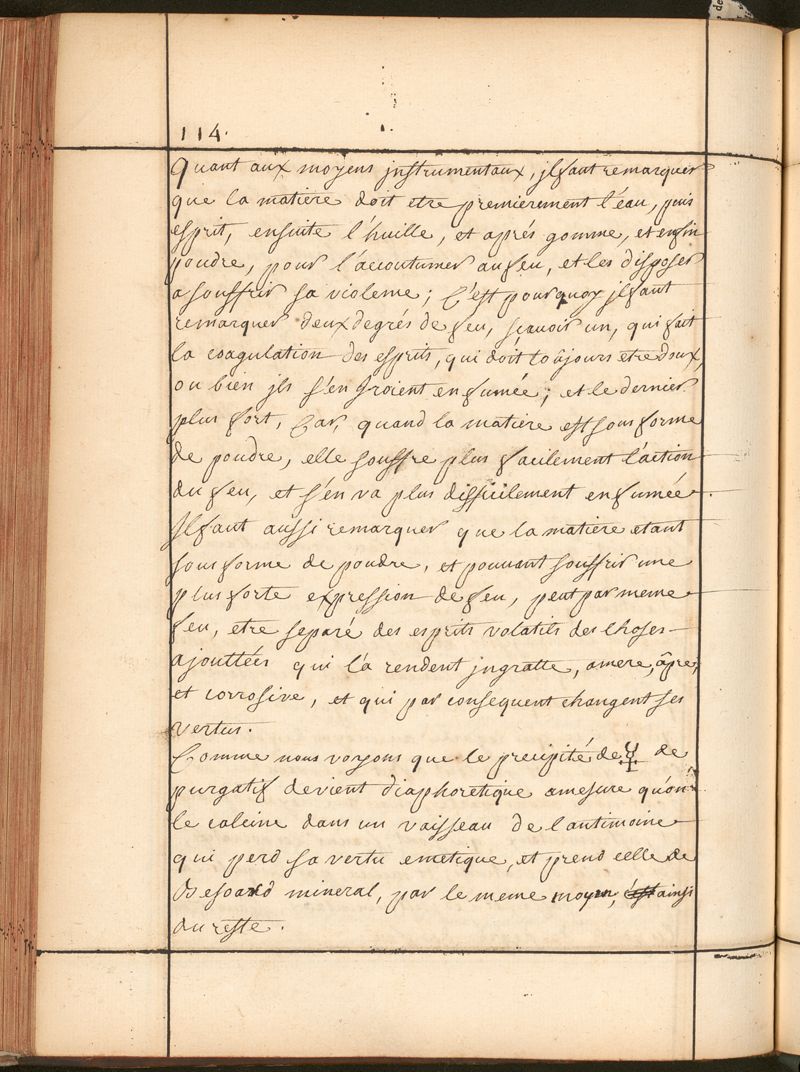 114.
Quant aux moyens jnstrumentaux, jl faut remarquer
que la matiere doit etre premierement l'éau, puis
esprit, ensuite l'huille, et aprés gomme, et enfin
poudre, pour l'accoutumer au feu, et les disposer
a souffrir sa violence; C'est pourquoy jl faut
remarquer deux degrés de feu, sçauoir un, qui fait
la coagulation des esprits, qui doit toûjours etre doux,
ou bien jls s'en Jroient en fumée; et le dernier
plus fort, Car, quand la matiere est sous forme
de poudre, elle souffre plus facilement l'action
du feu, et s'en va plus difficilement en fumée.
Jl faut aussi remarquer que la matiere etant
sous forme de poudre, et pouuant souffrir une
plus forte expression de feu, peut par meme
feu, etre separé des esprits volatils des choses
ajouttées qui l'a rendent jngratte, amere, âpre,
et corrosive, et qui par consequent changent ses
vertus.
Comme nous voyons que le precipité de ☿ de
purgatif devient diaphoretique amesure qu'on
le calcine dans un vaisseau de l'antimoine
qui perd sa vertu emetique, et prend celle de
Besoard mineral, par le meme moyen, ainsi
du reste.